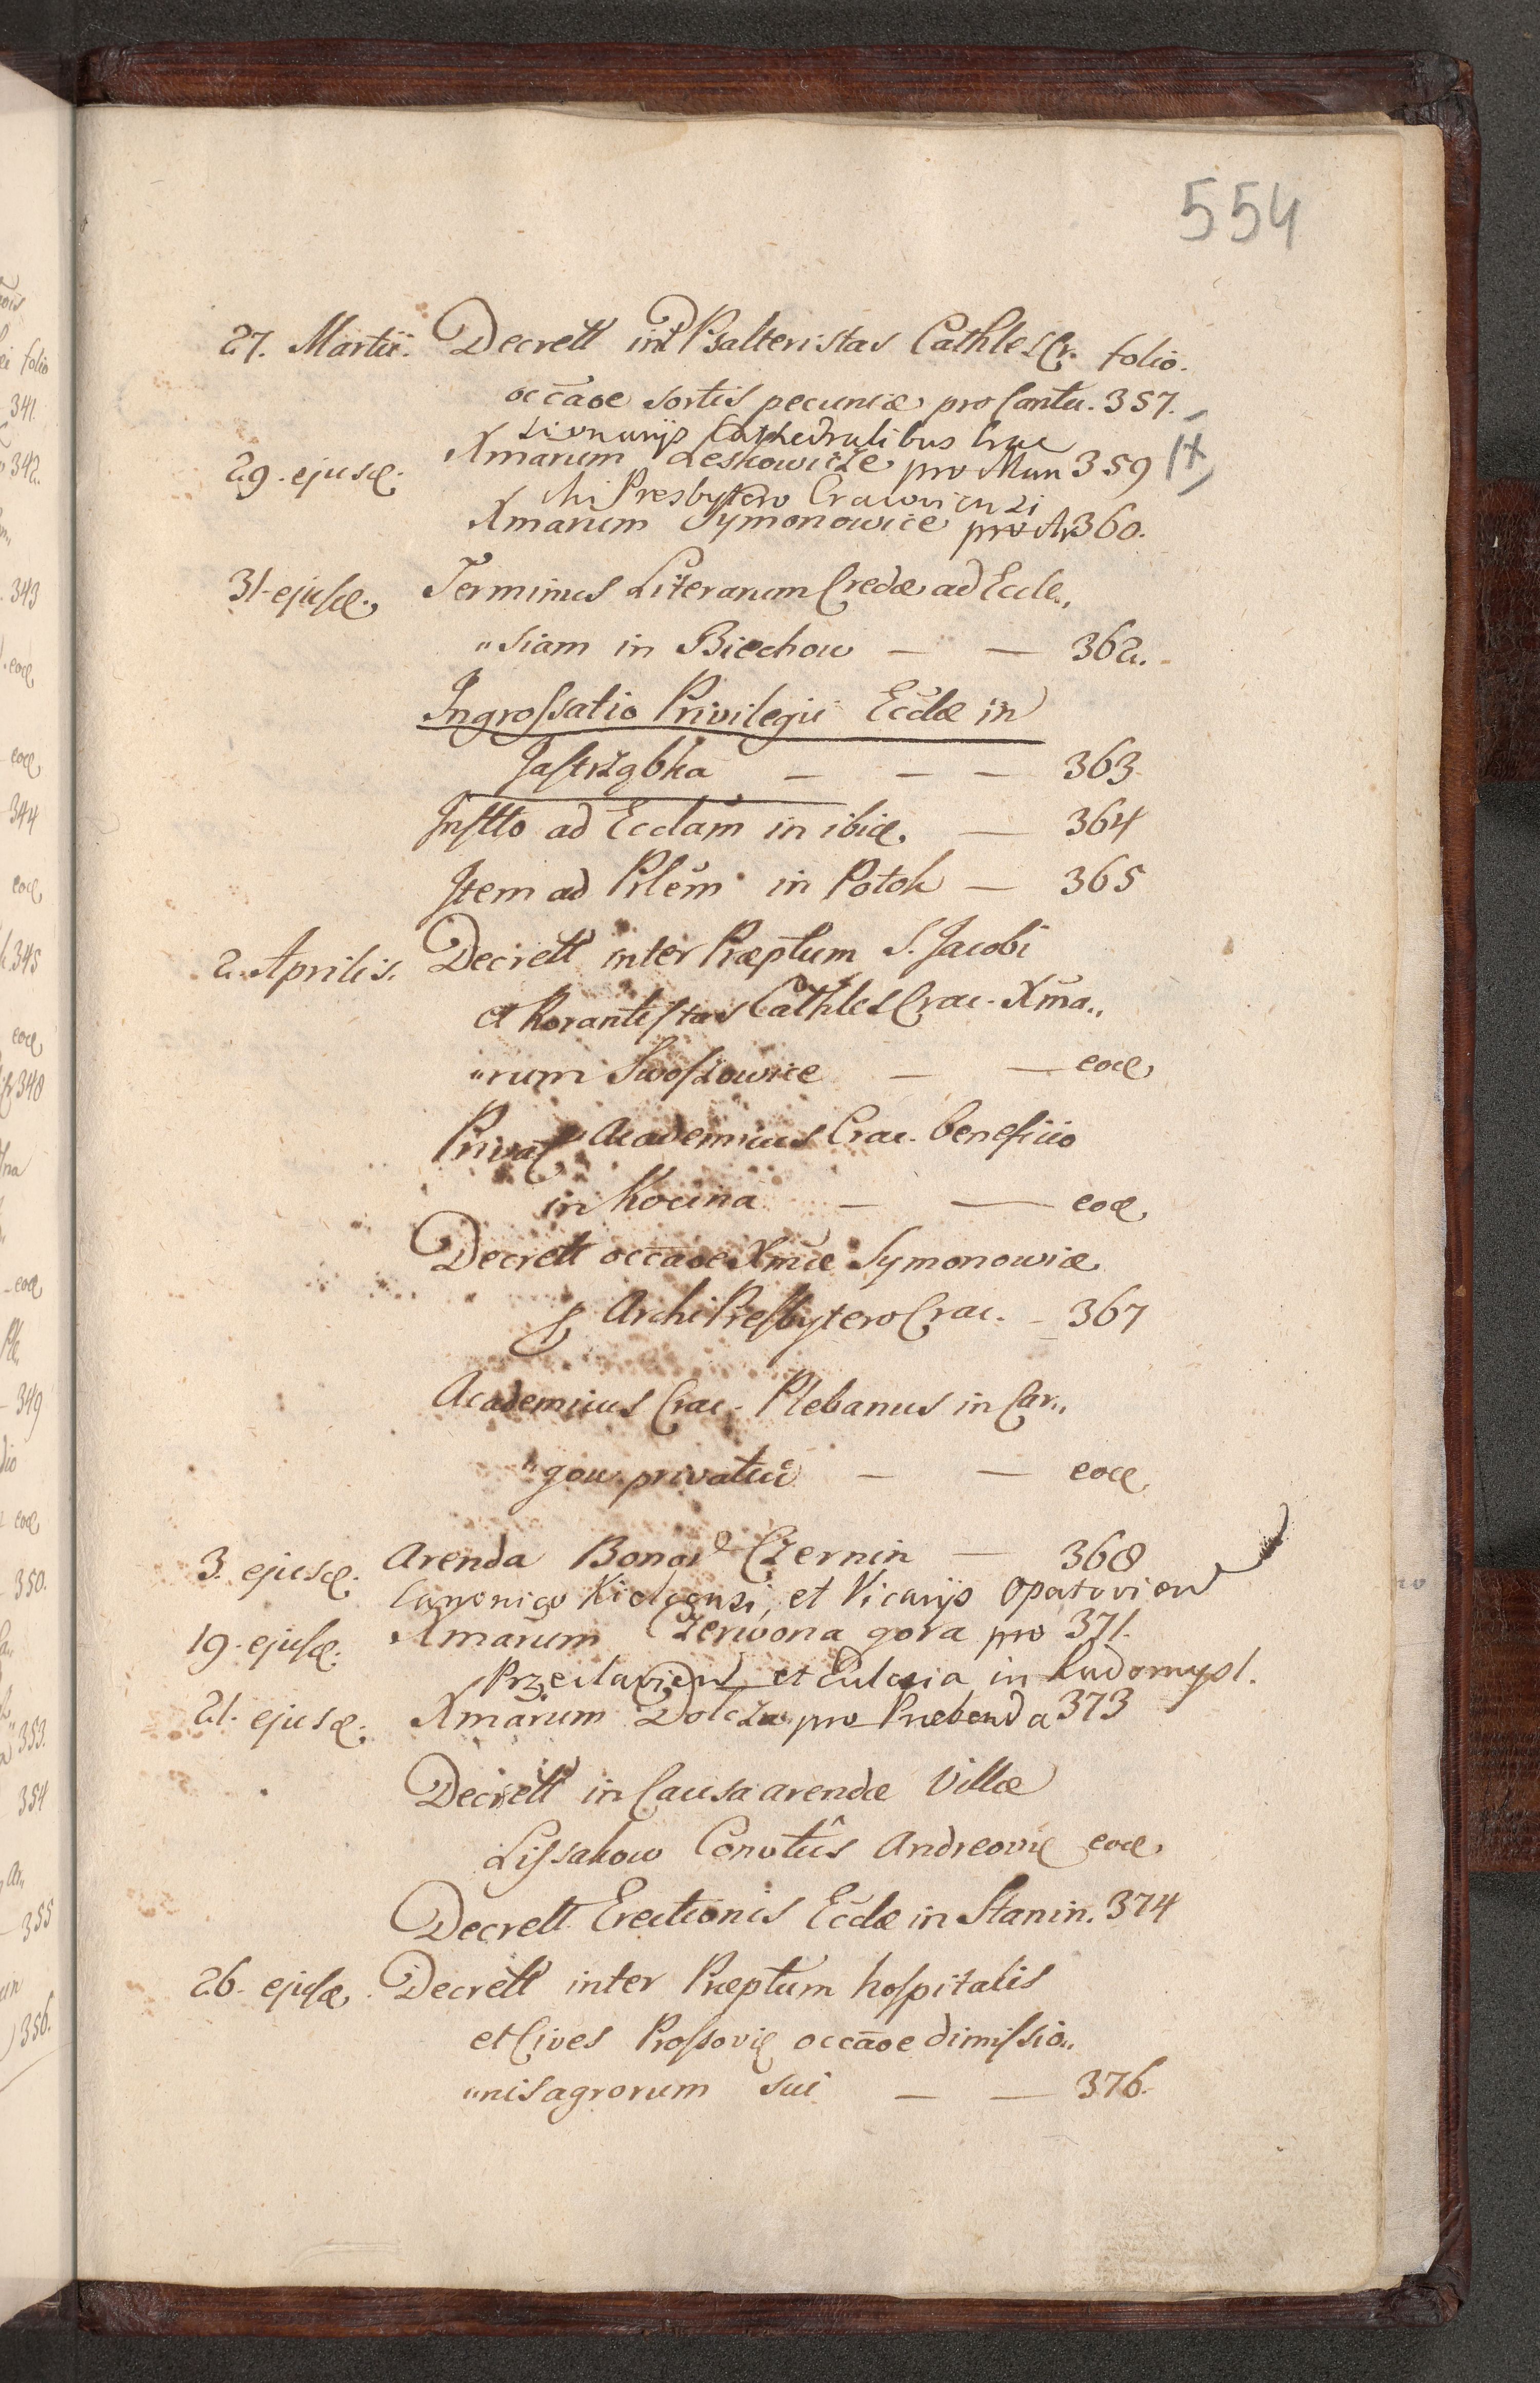 554
27. Martii. Decrett int Psalteristas Cathles Cr. folio.
occāoe sortis pecuniæ pro Cantu. 357.
sionarijs Cathedralibus Crac
29. ejusd. Xmarum Leskowicze pro Man 359
chi Presbytero Cracovienzi
Xmarum Symonowice pro Ar 360.
31. ejusd. Terminus Literarum Credæ ad Eccle„
„siam in Biechow — — 362.
Ingrossatio Privilegii Eccłæ in
Jastrząbka — — — 363.
Instto ad Ecclam in ibid. — 364
Item ad Prlem in Potok — 365
2. Aprilis. Decrett inter Præptum S. Jacobi
et Rorantistas Cathles Crac. Xma„
„rum Swoszowice — — eod.
Privat Academicus Crac. beneficio
in Kocina — — eod.
Decrett occāoe Xmæ Symonowice
p Archi Presbytero Crac. — 367
Academicus Crac. Plebanus in Car„
„gow privatur — — eod.
3. ejusd. Arenda Bonor Czernin — 368
Canonico Kielcensi, et Vicarijs Opatovien
19. ejusd. Xmarum Czerwona gora pro 371.
Przeclavien et Eclesia in Radomysl.
21. ejusd. Xmarum Dolcza pro Præbenda 373
Decrett in Causa arendæ Villæ
Lissakow Convtûs Andreovi eod.
Decrett Erectionis Eccłæ in Stanin. 374
26. ejusd. Decrett inter Præptum hospitalis
et Cives Prossovi occāoe dimissio„
„nis agrorum sui — — 376.
ei folio
341
342.
343
eod
eod
344
eod
345
eod
348
eod
349
eod
350.
353.
354
355
356.